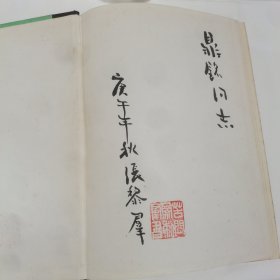 鼎铭同志
庚午年秋 张黎群